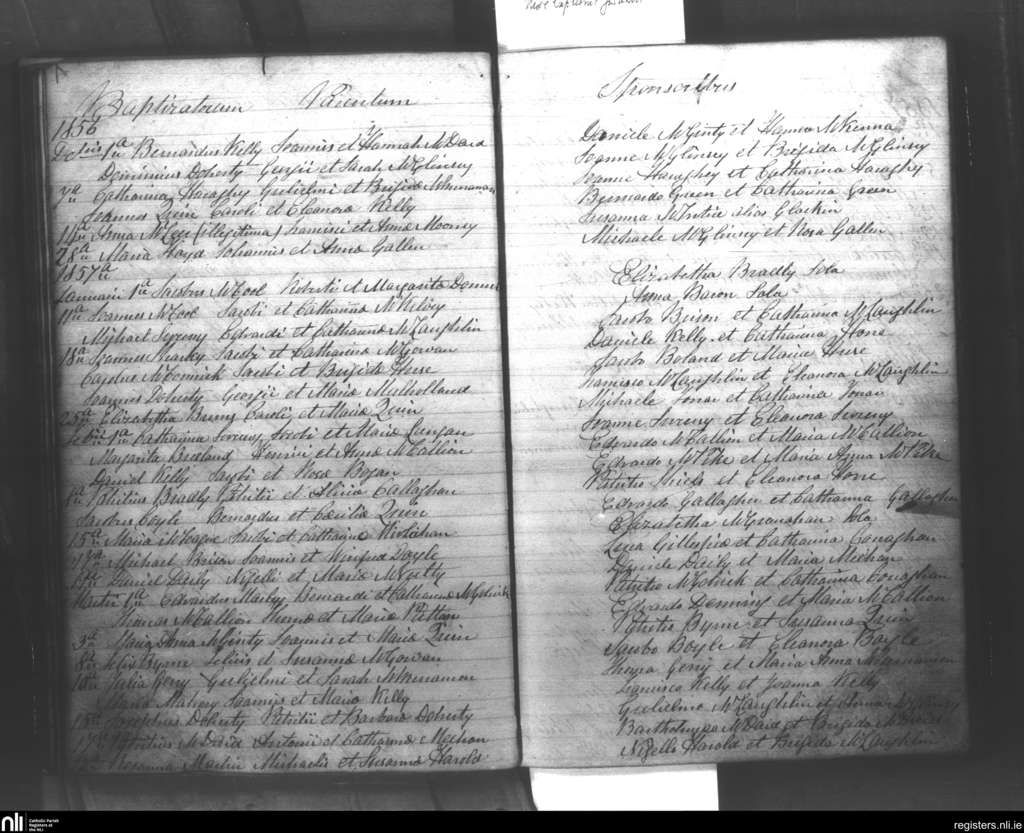 Baptizatorum Parentum
1856
1a Bernardus Kelly Joannis et Hannah McDaid
Dominicus Doherty Georgii et Sarah McGlinsey
7a Catharina Haraghy Gulielmi et Brigida McMenaman
Joannes Quin Caroli et Eleanora Kelly
14a Anna McGee (illegitima) Francisci et Anna Mooney
28a Maria Lloyd Johannis et Anna Gallen
1857
Januarii 1a Jacobus McCool Roberti et Margarita
11a Joannes McCool Jacobi et Catharina McNelivy
Michael Sereny Edvardi et Catharina McLaughlin
18a Joannes Sharky Jacobi et Catharina McGowan
Carolus McCormick Jacobi et Brigida Hone
Joannes Doherty Georgii et Maria Mulholland
25a Elizabetha Bunny Caroli et Maria Quin
1a Catharina Sereny Jacobi et Maria Lungan
Margarita Breeland Henrici et Anna McCallion
Daniel Kelly Jacobi et Rosa Bogan
8a Patritius Bradly Patritii et Alicia Callaghan
Jacobus Coyle Bernardus et Caecilia Quin
15a Maria McCague Jacobi et Catharina
Michael Brison Joannis et Winifred Doyle
Daniel Deily Nigelli et Maria McNutty
Martii 1a Edvardus Martin Bernardi et Catharina McGetrick
Thomas McCallion Thoma et Maria Patton
3a Maria Anna McGinty Joannis et Maria Quin
8a Felix Byrne Felicis et Susanna McGowan
10a Julia Gerry Gulielmi et Sarah McMenamon
Maria Mahony Joannis et Maria Kelly
15a Josephus Doherty Patritii et Barbara Doherty
17a Patritius McDaid Antonii et Catharina Meehan
Rosanna Martin Michaelis et Susanna Harold
Sponsoribus
Daniele McGinty et Hanna McKenna
Joanne McGlinsey et Brigida McGlinsey
Joanne Haraghey et Catharina Haraghy
Bernardo Green et Catharina Green
Susanna McIntire alias Glackin
Michaele McGlinny et Rosa Gallen
Elizabetha Bradly Sola
Anna Bacon Sola
Jacobo Brison et Catharina McLaughlin
Daniele Kelly et Catharina Hone
Jacobo Boland et Maria Hone
Francisco McLaughlin et Eleanora McLaughlin
Michaele Sonan et Catharina Sonan
Joanne Sereny et Eleanora Sereny
Edvardo McCallion et Maria McCallion
Edvardo McTike et Maria Anna McTike
Patritio Shiels et Eleanora Hone
Edvardo Gallagher et Catharina Gallagher
Elizabetha McGranahan Sola
Luca Gillespie et Catharina Conaghan
Daniele Deily et Maria Meehan
Patritio McGetrick et Catharina Conaghan
Edvardo Deminy et Maria McCallion
Patritio Byrne et Susanna Quin
Jacobo Boyle et Eleanora Boyle
Thoma Gerry et Maria Anna McMenamon
Francisco Kelly et Joanna Kelly
Gulielmo McLaughlin et
Bartholomao McDaid et Brigida
Nigello Harold et Brigida McLaughlin
nli
Catholic Parish
Registers at
the NLI
registers.nli.ie